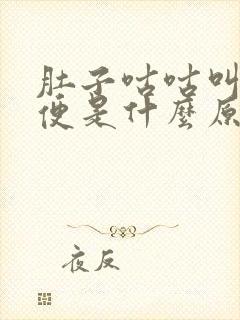 肚子咕咕叫
便是什麼原
夜反